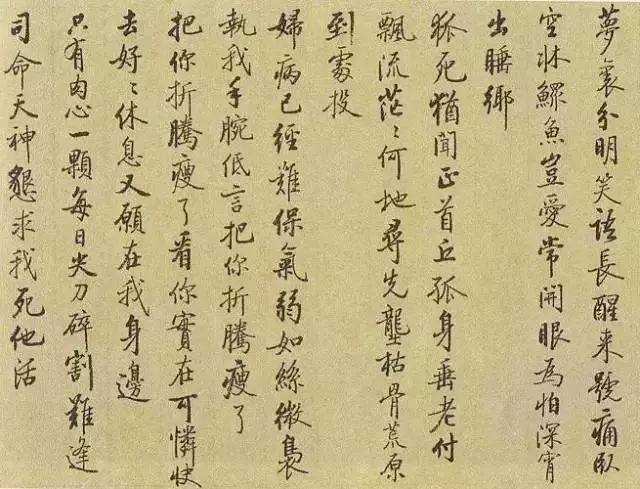 夢裏分明笑語長醒来號痛卧
空牀鰥魚豈愛常開眼為怕深宵
出睡鄉
狐死猶聞正首丘孤身垂老付
飄流茫々何地尋先壟枯骨荒原
到處投
婦病已經難保氣弱如絲微裊
執我手腕低言把你折騰瘦了
把你折騰瘦了看你實在可憐快
去好々休息又願在我身邊
只有肉心一顆每日尖刀碎割難逢
司命天神懇求我死他活